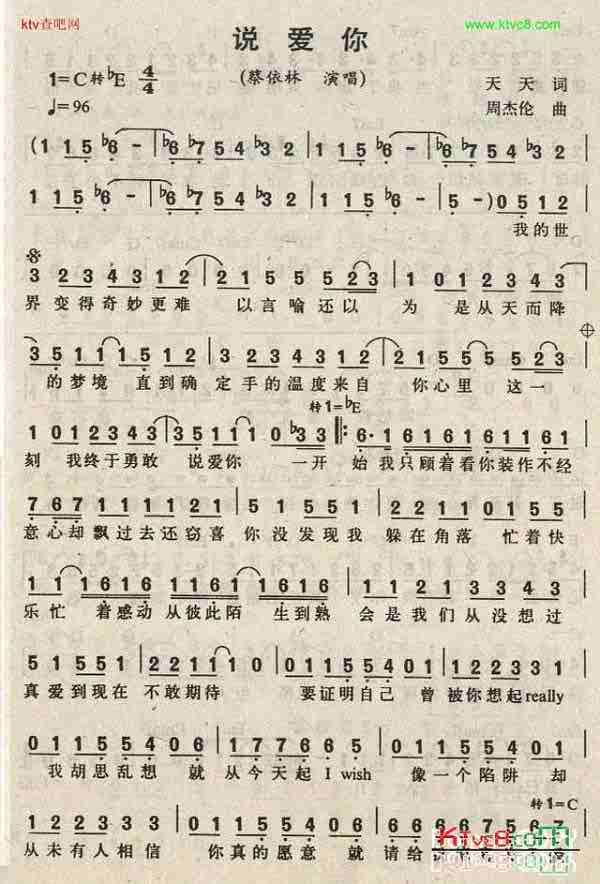 ktv查吧网
www.ktvc8.com
说爱你
1=C转♭E 4/4
(蔡依林 演唱)
天天 词
♩=96
周杰伦 曲
(1 1 5 ♭6 - | ♭6 ♭7 5 4 ♭3 2 | 1 1 5 ♭6 - | ♭6 ♭7 5 4 ♭3 2
1 1 5 ♭6 - | ♭6 ♭7 5 4 ♭3 2 | 1 1 5 ♭6 - | 5 - ) 0 5 1 2
我的世
3 2 3 4 3 1 2 | 2 1 5 5 5 5 2 3 | 1 0 1 2 3 4 3
界变得奇妙更难 以言喻还以 为 是从天而降
3 5 1 1 1 5 1 2 | 3 2 3 4 3 1 2 | 2 1 5 5 5 5 2 3
的梦境 直到确 定手的温度来自 你心里 这一
转1=♭E
1 0 1 2 3 4 3 | 3 5 1 1 1 0 ♭3 3 |: 6· 1 6 1 6 1 6 1 1 6 1
刻 我终于勇敢 说爱你 一开 始我只顾着看你装作不经
7 6 7 1 1 1 1 2 1 | 5 1 5 1 1 2 | 2 2 1 1 0 1 5 5
意心却飘过去还窃喜 你没发现我 躲在角落 忙着快
1 1 1 6 1 6 | 1 1 6 1 6 1 | 1 1 6 1 6 1 2 1 | 2 1 2 3 4 3
乐忙 着感动 从彼此陌 生到熟 会是我们从没想过
5 1 5 5 1 2 | 2 2 1 1 1 0 | 0 1 1 5 5 4 0 1 | 1 2 2 2 3 2 1
真爱到现在 不敢期待 要证明自己 曾被你想起really
0 1 1 5 5 4 0 6 | 1 7 7 6 6 5 | 0 1 1 5 5 4 0 1
我胡思乱想 就从今天起I wish 像一个陷阱 却
转1=C
1 2 2 2 3 2 1 | 0 1 1 5 5 4 0 6
从未有人相信 你真的愿意 就请给
KTvc8.com